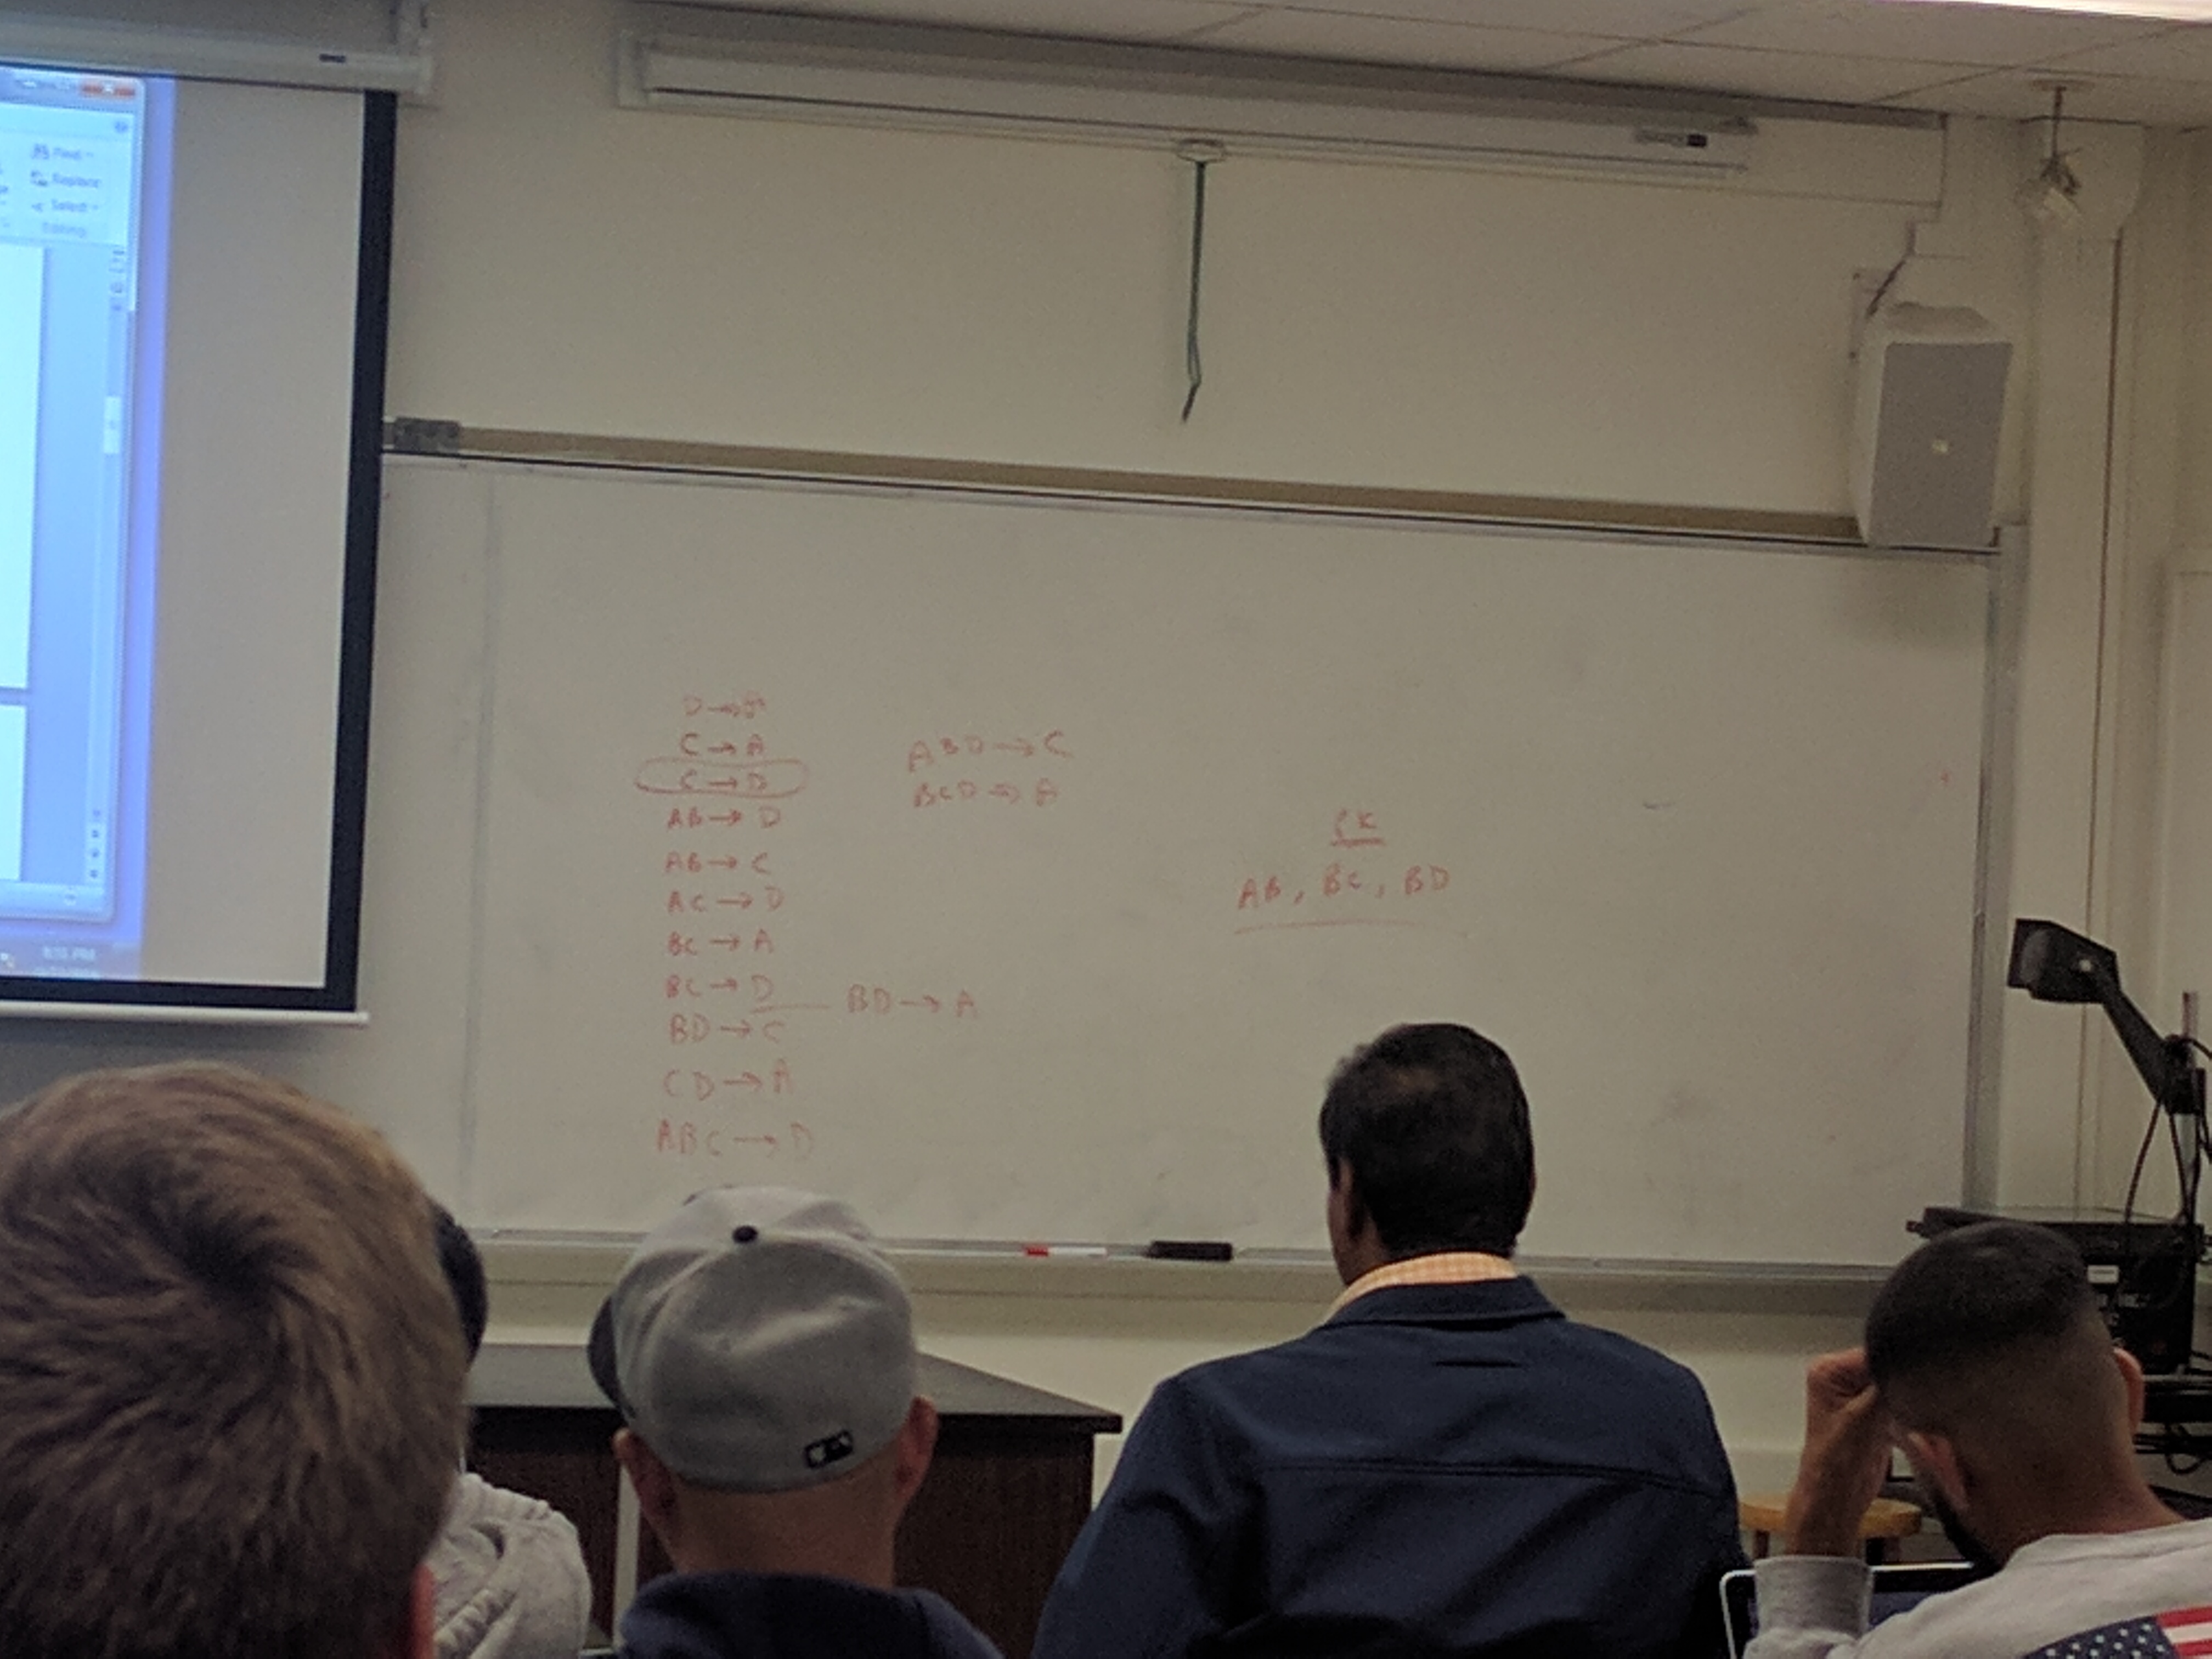 Find
Replace
Select
Editing
D → A
C → A
C → D
AB → D
AB → C
AC → D
BC → A
BC → D
BD → C
CD → A
ABC → D
ABD → C
BCD → A
BD → A
CK
AB, BC, BD